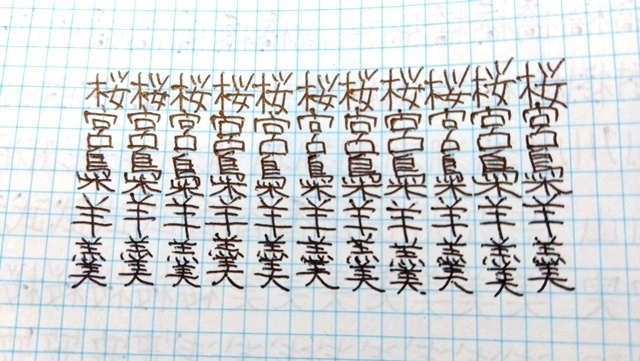 桜宮梟羊羹
桜宮梟羊羹
桜宮梟羊羹
桜宮梟羊羹
桜宮梟羊羹
桜宮梟羊羹
桜宮梟羊羹
桜宮梟羊羹
桜宮梟羊羹
桜宮梟羊羹
桜宮梟羊羹